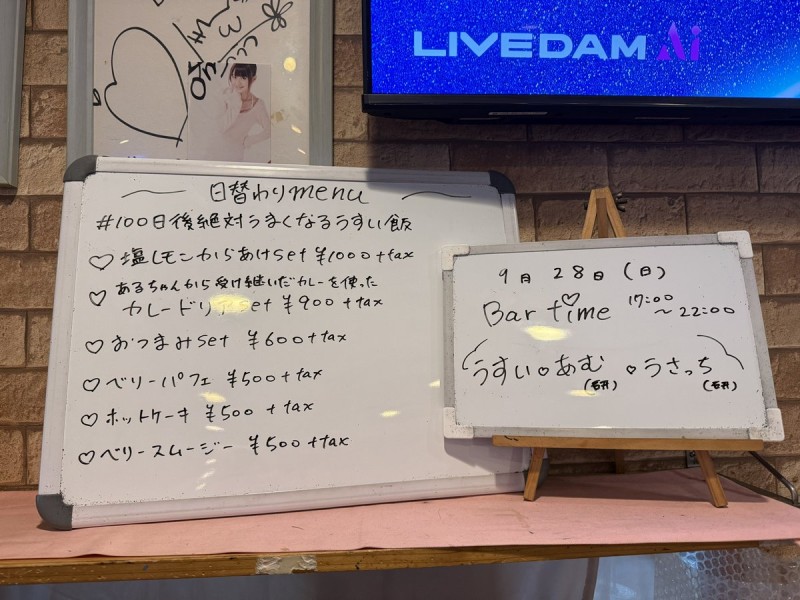 LIVEDAM Ai
日替わりmenu
#100日後絶対うまくなるうすい飯
♡ 塩レモンからあげset ¥1000+tax
♡ あるちゃんから受け継いだカレーを使った
カレードリアset ¥900+tax
♡ おつまみset ¥600+tax
♡ ベリーパフェ ¥500+tax
♡ ホットケーキ ¥500+tax
♡ ベリースムージー ¥500+tax
9月28日(日)
Bar time 17:00
~22:00
うすい♡あむ♡うさっち